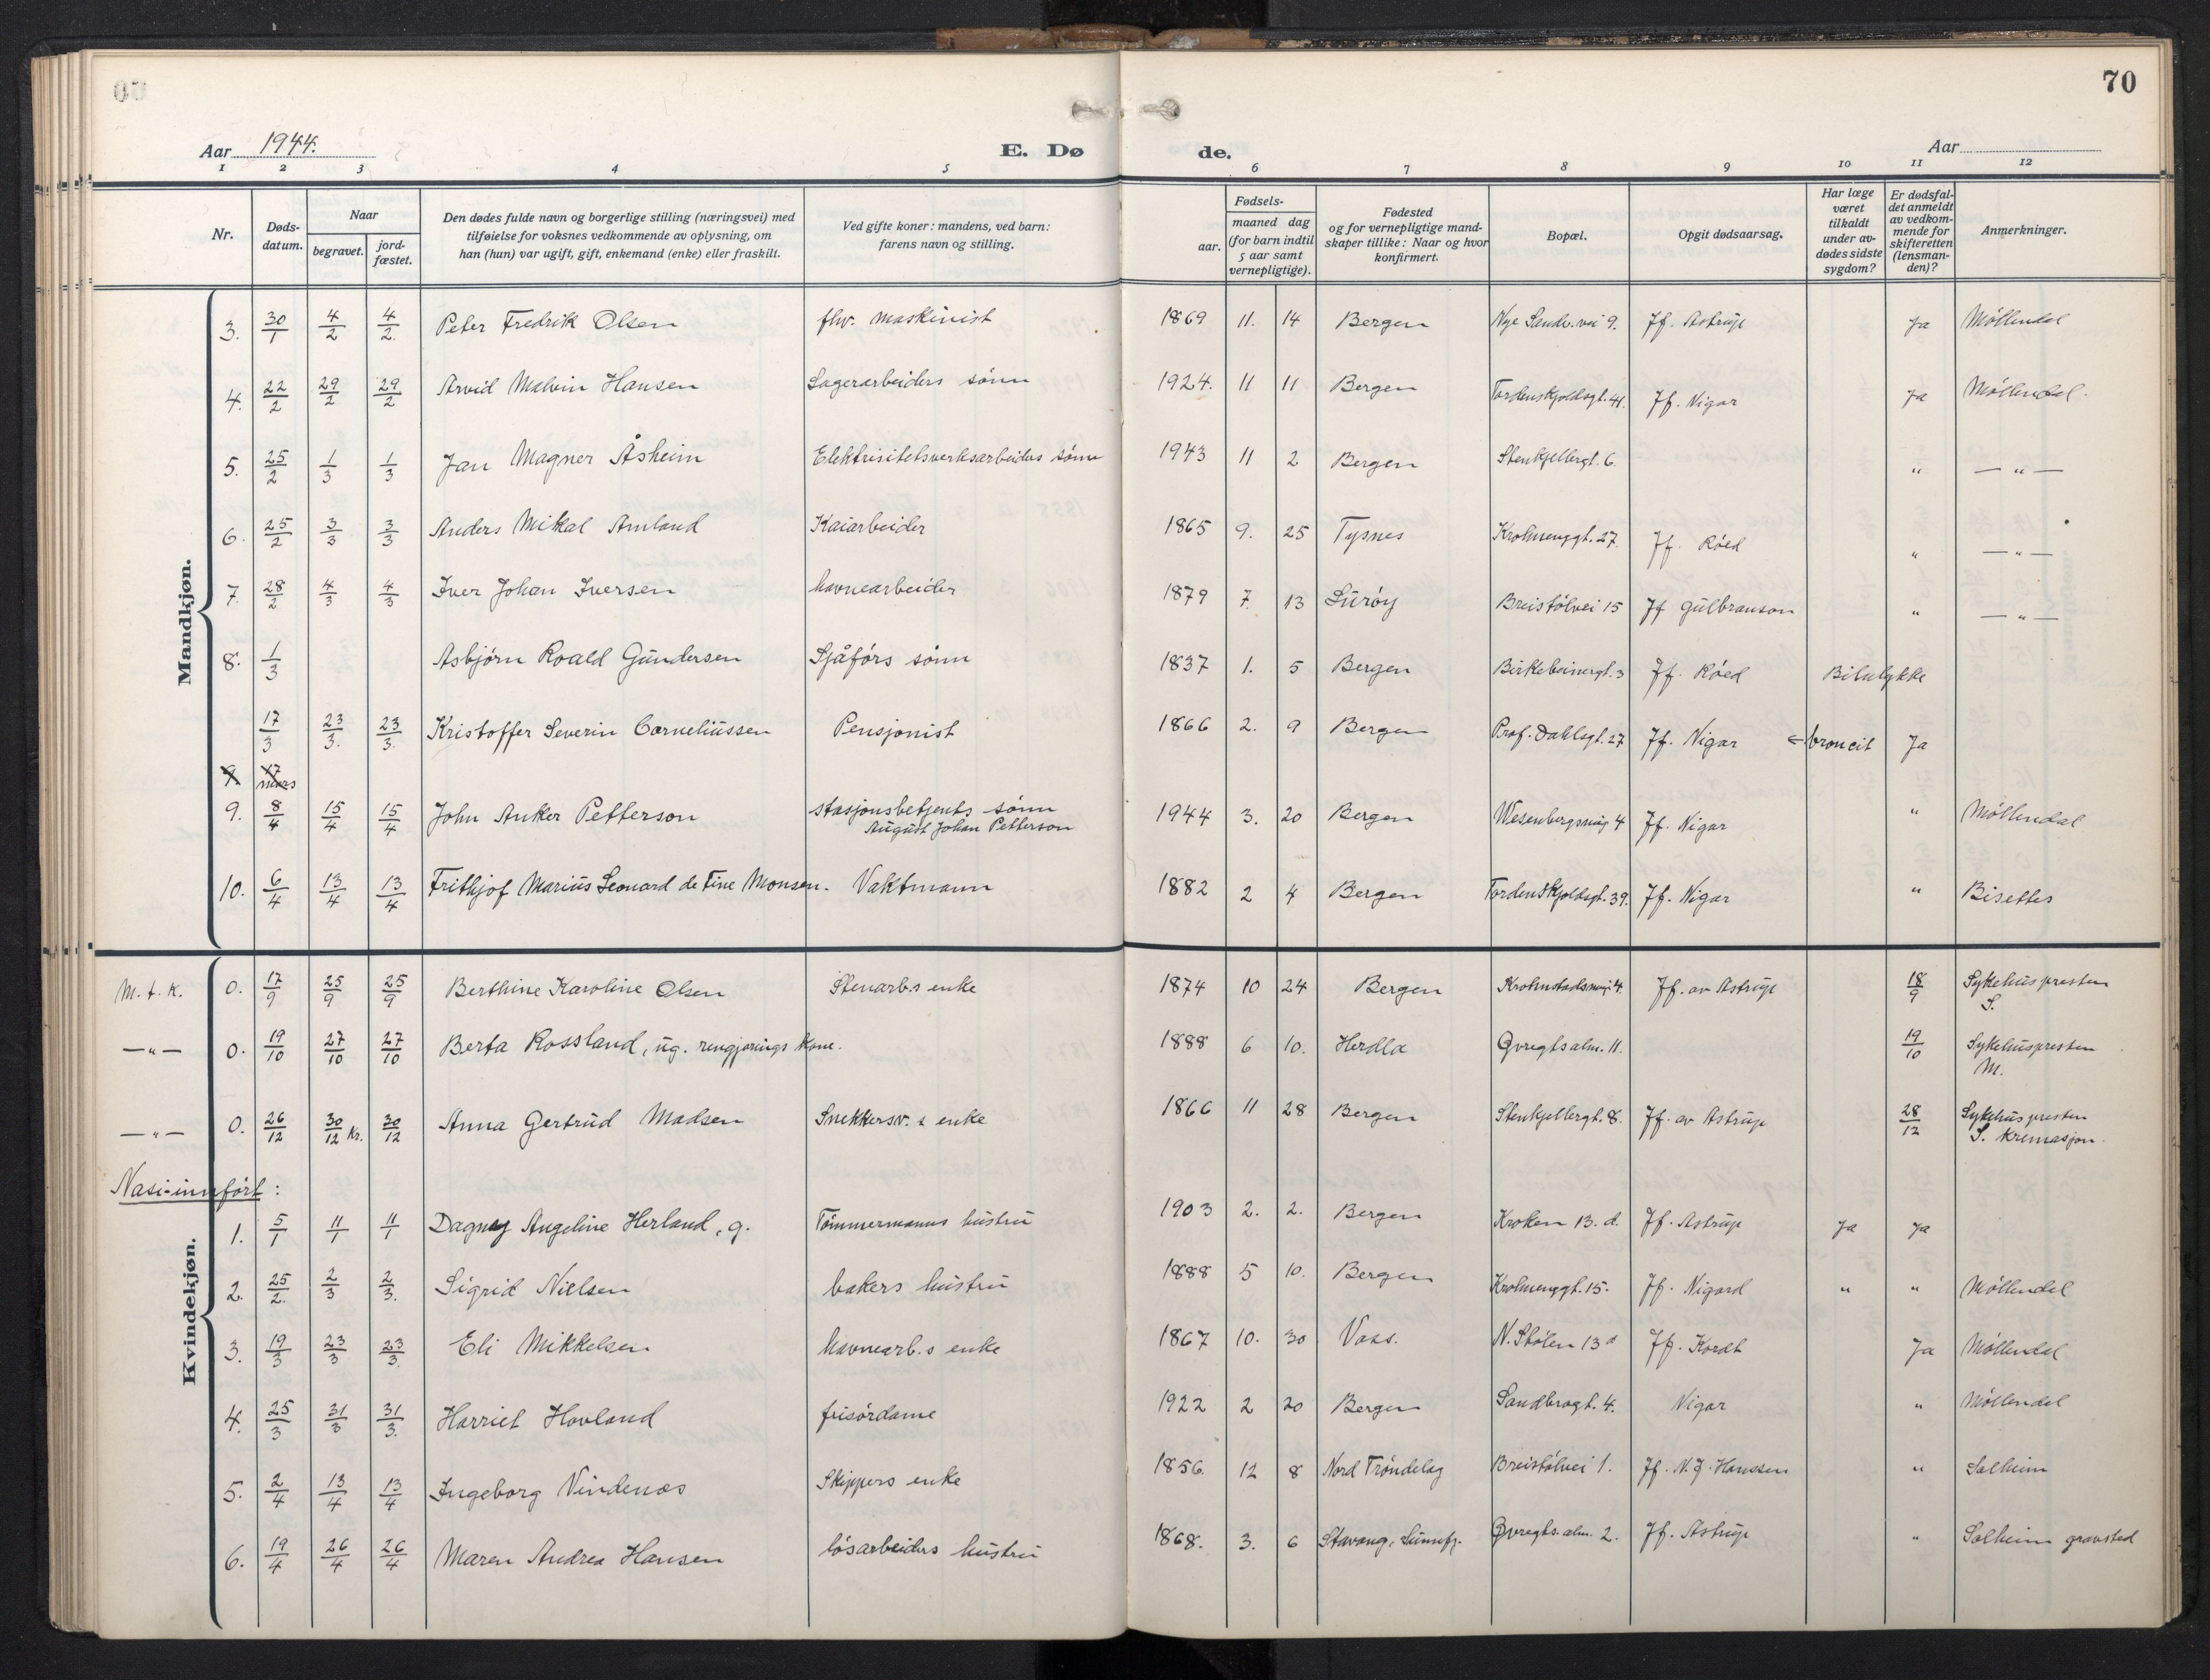 70
Aar 1944.
E. Døde.
Aar
1 2 3 4 5 6 7 8 9 10 11 12
Nr.
Døds-
datum.
Naar
begravet.
jord-
fæstet.
Den dødes fulde navn og borgerlige stilling (næringsvei) med
tilføielse for voksnes vedkommende av oplysning, om
han (hun) var ugift, gift, enkemand (enke) eller fraskilt.
Ved gifte koner: mandens, ved barn:
farens navn og stilling.
Fødsels-
aar.
maaned dag
(for barn indtil
5 aar samt
vernepligtige).
Fødested
og for vernepligtige mand-
skaper tillike: Naar og hvor
konfirmert.
Bopæl.
Opgit dødsaarsag.
Har læge
været
tilkaldt
under av-
dødes sidste
sygdom?
Er dødsfal-
det anmeldt
av vedkom-
mende for
skifteretten
(lensman-
den)?
Anmerkninger.
Mandkjøn.
3. 30/1 4/2 4/2. Peter Fredrik Olsen fhv. maskinist 1869 11. 14 Bergen Nye Sandv. vei 9. Jf. Astrup Ja Møllendal
4. 22/2 29/2 29/2 Arvid Malvin Hansen Lagerarbeiders sønn 1924. 11 11 Bergen Tordenskjoldsgt. 41. Jf. Nigar Ja Møllendal.
5. 25/2 1/3 1/3 Jan Magner Åsheim Elektrisitetsverksarbeiders sønn 1943 11 2 Bergen Stenkjellergt. 6. " — " —
6. 25/2 3/3 3/3 Anders Mikal Amland Kaiarbeider 1865 9. 25 Tysnes Krohnenggt. 27. Jf. Røed " — " —
7. 28/2 4/3 4/3 Iver Johan Iversen havnearbeider 1879 7. 13 Lurøy Breistølvei 15 Jf Gulbranson " — " —
8. 1/3 Asbjørn Roald Gundersen Sjåførs sønn 1837 1. 5 Bergen Birkebeinergt. 3 Jf. Røed Bilulykke
17/3 23/3. 23/3. Kristoffer Severin Corneliussen Pensjonist 1866 2. 9 Bergen Prof. Dahlsgt. 27 Jf. Nigar broncit Ja
9. 17 mars
9. 8/4 15/4 15/4 John Anker Petterson stasjonsbetjents sønn
August Johan Petterson 1944 3. 20 Bergen Wesenbergsmug 4 Jf. Nigar " Møllendal
10. 6/4 13/4 13/4 Frithjof Marius Leonard de Fine Monsen. Vaktmann 1882 2 4 Bergen Tordenskjoldsgt. 39. Jf. Nigar " Bisettes
Kvindekjøn.
M. f. K. 0. 17/9 25/9 25/9 Berthine Karoline Olsen Stenarb.s enke 1874 10 24 Bergen Krohnstadsmug. 4. Jf. av Astrup 18/9 Sykehuspresten
S.
— " — 0. 19/10 27/10 27/10 Berta Rossland, ug. rengjørings kone. 1888 6 10. Herdla Øvregtsalm. 11. 19/10 Sykehuspresten
M.
— " — 0. 26/12 30/12 Kr. 30/12 Anna Gertrud Madsen Snekkersv. s enke 1866 11 28 Bergen Stenkjellergt. 8. Jf. av Astrup 28/12 Sykehuspresten
S. Kremasjon.
Nasi-innført:
1. 5/1 11/1 11/1 Dagny Angeline Herland, g. Tømmermanns hustru 1903 2. 2. Bergen Kroken 13. d. Jf. Astrup Ja Ja
2. 25/2. 2/3 2/3. Sigrid Nielsen bakers hustru 1888 5 10. Bergen Krohnenggt. 15. Jf. Nigard " " Møllendal
3. 19/3 23/3 23/3. Eli Mikkelsen havnearb.s enke 1867 10. 30 Voss. N. Stølen 13 d Jf. Kordt Ja Møllendal
4. 25/3 31/3 31/3. Harriet Hovland frisørdame 1922 2 20 Bergen Sandbrogt. 4. Nigar " Møllendal
5. 2/4 13/4 13/4 Ingeborg Vindenes Skippers enke 1856. 12 8 Nord Trøndelag Breistølvei 1. Jf. N. J. Hanssen " Solheim
6. 19/4 26/4 26/4 Maren Andrea Hansen løsarbeiders hustru 1868. 3. 6 Stavang, Sunnfj. Øvregts. alm. 2. Jf. Astrup " Solheim gravsted